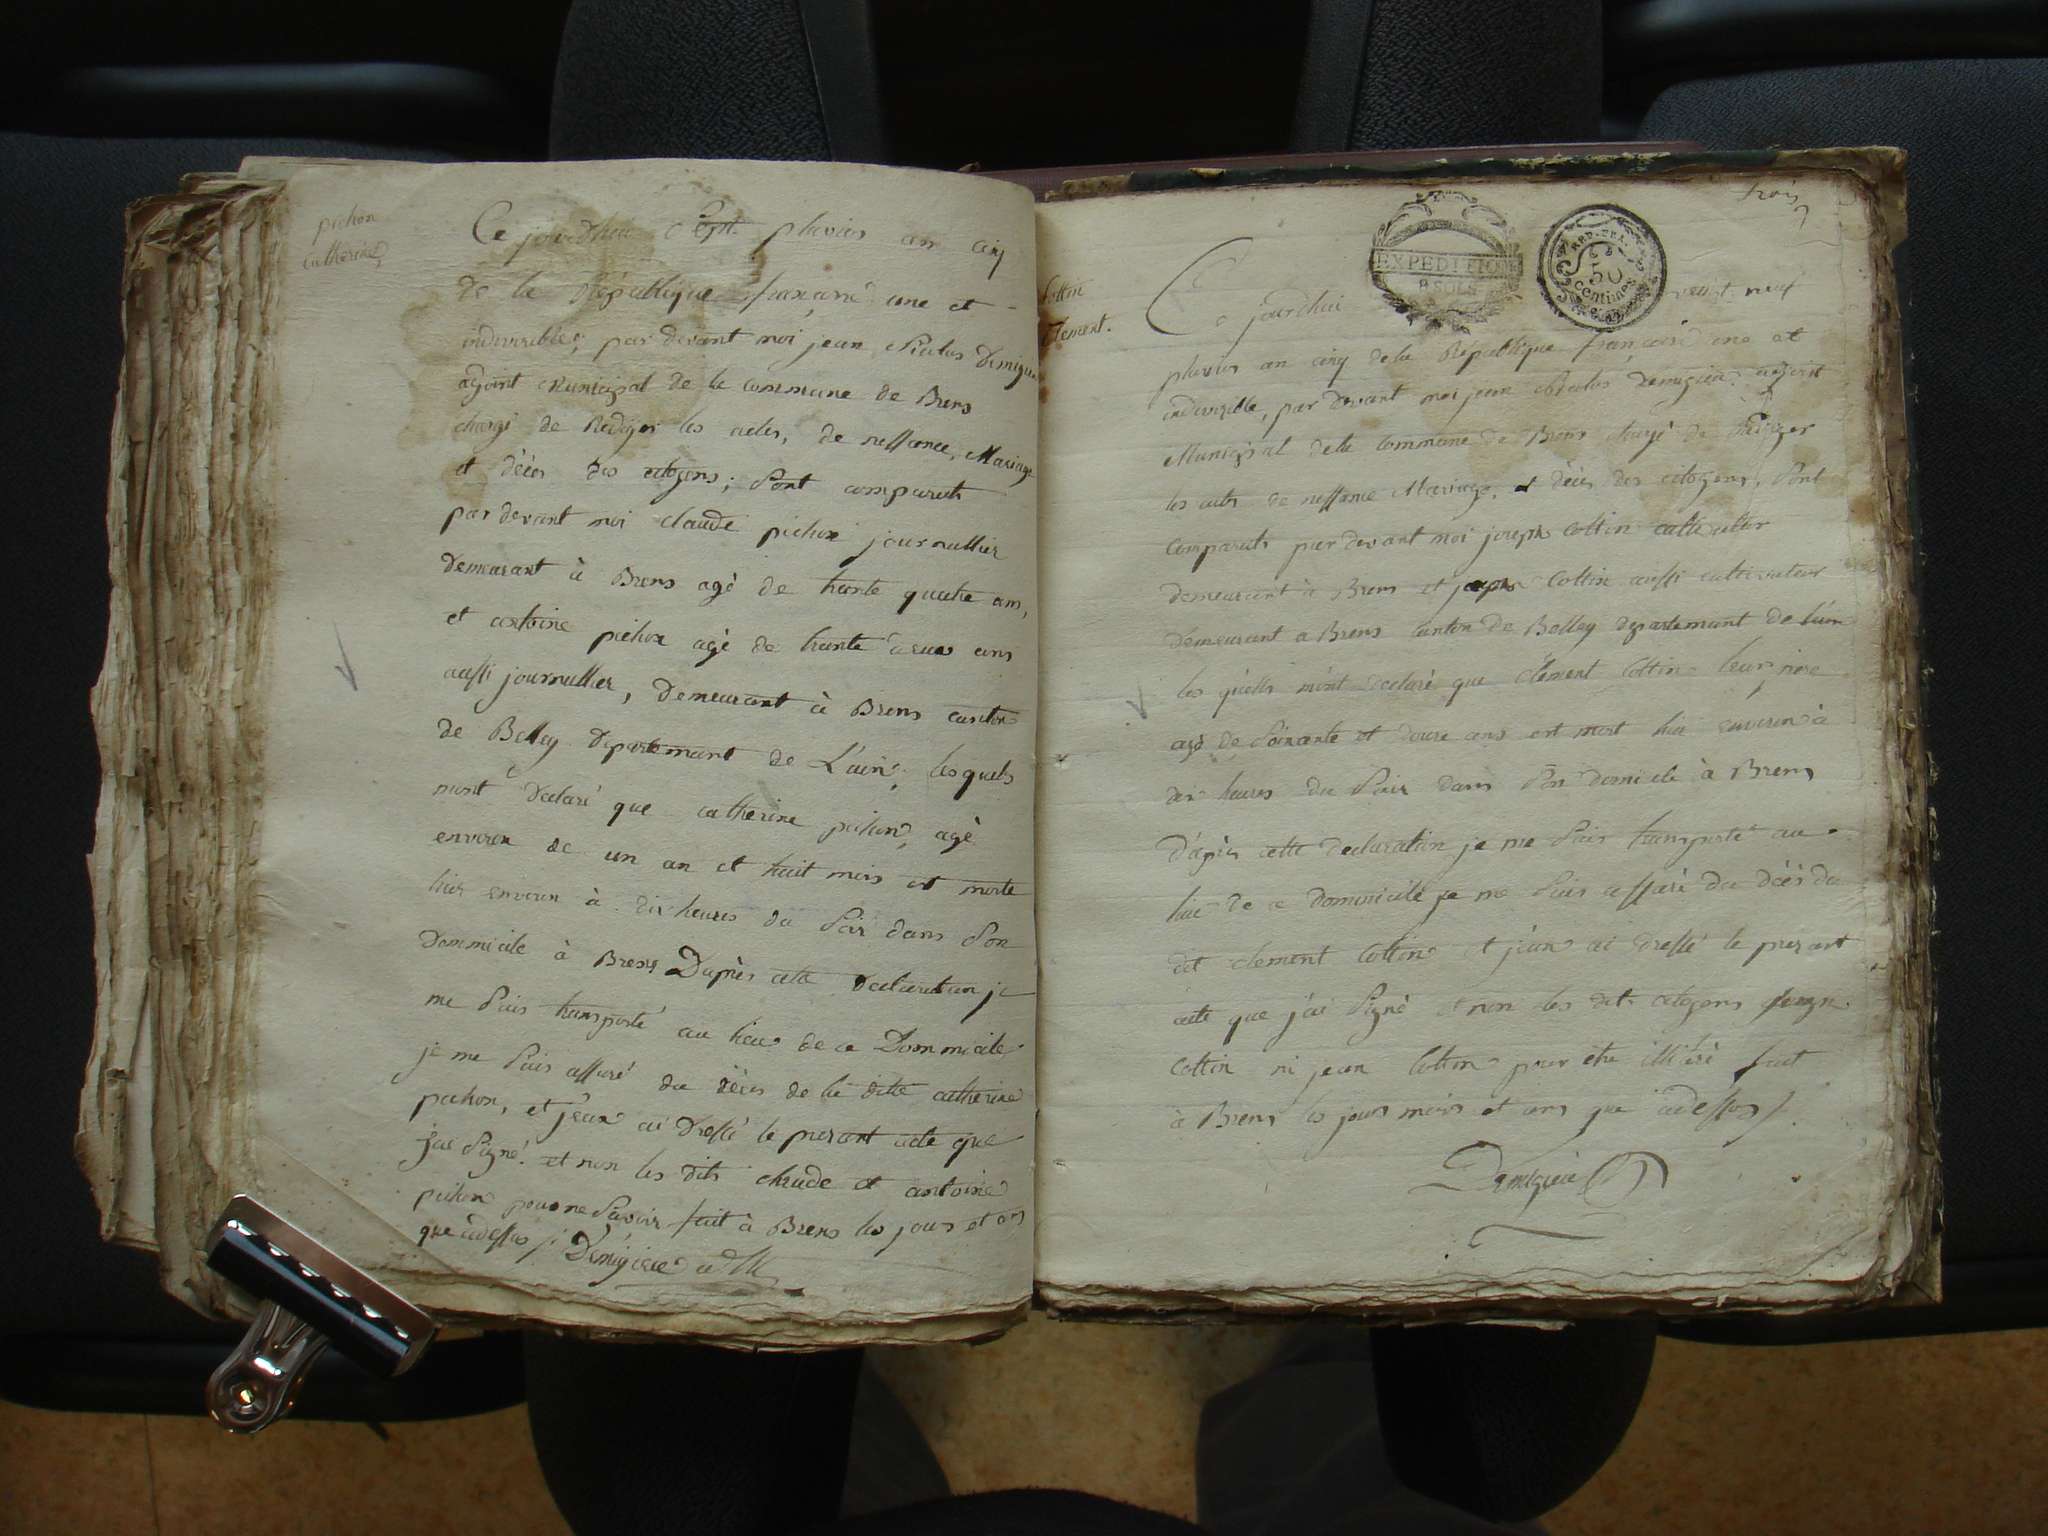 pichon
catherine
Ce jourdhui Sept pluvios an cinq
de la République françoise une et
indivisible, par devant moi jean Nicolas Demigieu
agoint Municipal de la commune de Brens
chargé de Rediger les actes, de nessance, Mariage
et décès des citoyens; Sont comparuts
par devant moi claude pichon journallier
demeurant à Brens agé de trante quatre ans,
et antoine pichon agé de trante deux ans
aussi journallier, demeurant à Brens canton
de Belley departemant de L'ain, lesquels
mont déclaré que catherine pichon, agé
environ de un an et huit mois est morte
hier environ à dix heures du Soir dans Son
Dommicile à Brens Daprès cette declaration je
me Suis transporté au lieu de ce Dommicile
je me Suis assuré du décès de la ditte catherine
pichon, et j'eau ai dressé le presant acte que
j'ai Signé. et non les dits claude et antoine
pichon pour ne Savoir fait à Brens les jours et ans
que cidessus /. Demigieu
trois
EXPEDITION
8 SOLS
REP. FRA.
50
centimes
Cottin
Clement.
Ce jourdhui vingt neuf
pluvios an cinq de la République françoise une et
indivisible, par devant moi jean Nicolas Demigieu agoint
Municipal de la commune de Brens chargé de Rédiger
les actes de nessance Mariage, et décès des citoyens, Sont
comparuts par devant moi joseph Cottin cultivateur
demeurant à Brens et Cottin aussi cultivateur
demeurant a Brens canton de Belley departemant de l'ain
les quells m'ont déclaré que clément Cottin leur pere
agé de Soixante et douze ans est mort hier environ à
dix heures du Soir dans Son domicile à Brens
D'après cette declaration je me Suis transporté au
lieu de ce dommicile je me Suis assuré du décès du
dit clement Cottin et j'eau ai dressé le presant
acte que j'ai Signé et non les dits citoyens joseph
Cottin ni jean Cottin pour etre illitéré fait
à Brens les jours mois et ans que cidessus /.
Demigieu